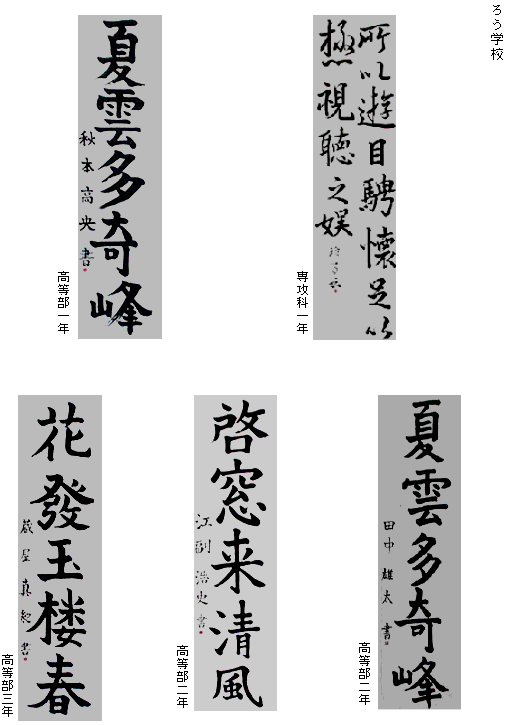 ろう学校
所以遊目騁懐足以
極視聴之娯
専攻科一年
夏雲多奇峰
秋本高央書
高等部一年
夏雲多奇峰
田中雄太書
高等部二年
啓窓来清風
江副浩史書
高等部二年
花發玉楼春
蔵屋真紀書
高等部三年